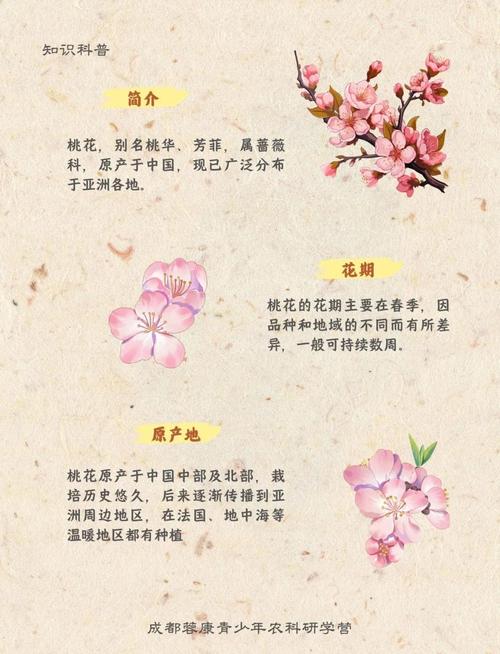 知识科普
简介
桃花，别名桃华、芳菲，属蔷薇
科，原产于中国，现已广泛分布
于亚洲各地。
花期
桃花的花期主要在春季，因
品种和地域的不同而有所差
异，一般可持续数周。
原产地
桃花原产于中国中部及北部，栽
培历史悠久，后来逐渐传播到亚
洲周边地区，在法国、地中海等
温暖地区都有种植
成都蓉康青少年农科研学营